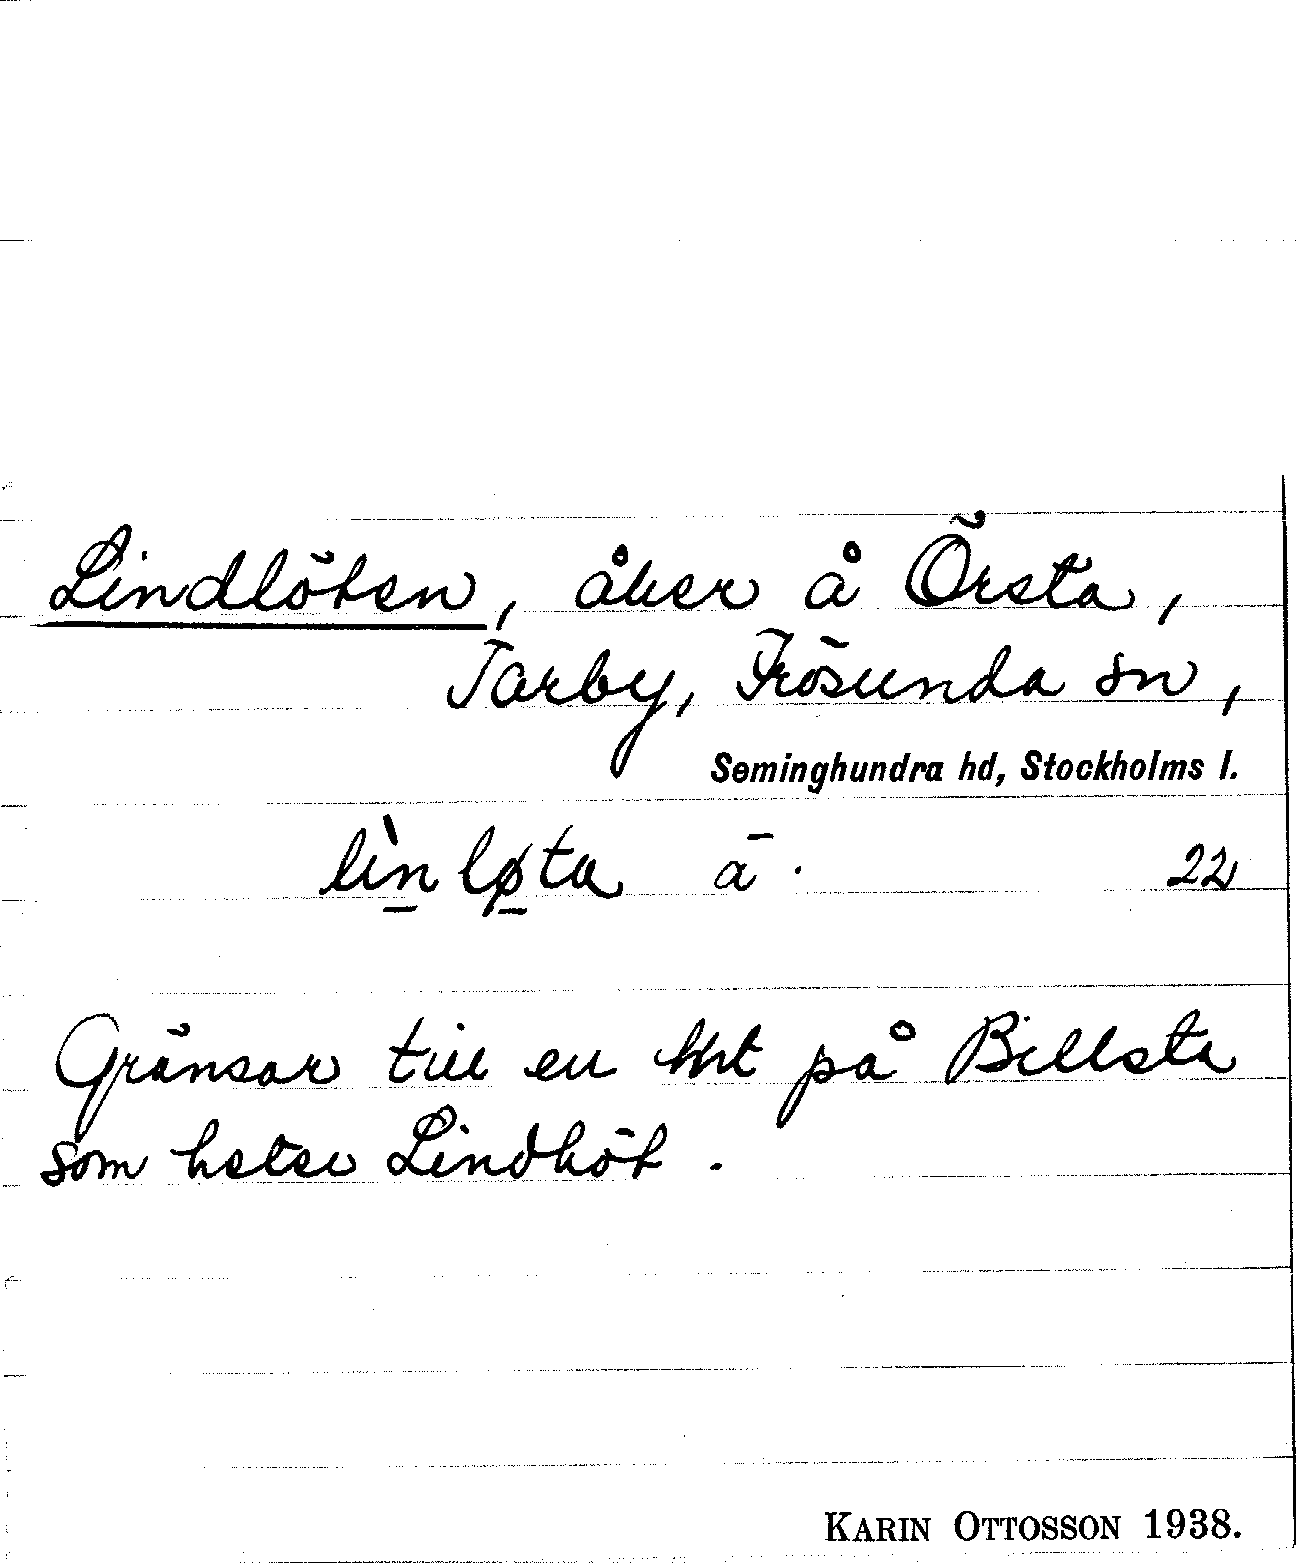 Lindlöten, åker å Örsta,
Tarby, Frösunda sn,
Seminghundra hd, Stockholms l.
lìn̲lø̲ta ā. 22
Gränsar till en på Billsta
som heter Lindlöt.
KARIN OTTOSSON 1938.